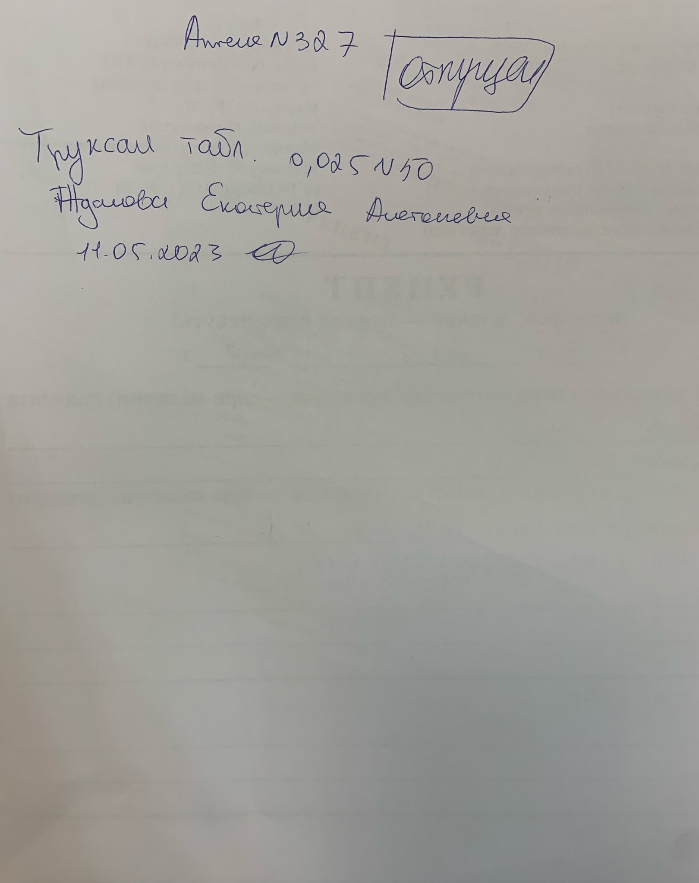 Аптека N 327
отпущен
Труксал табл. 0,025 N 50
Жданова Екатерина Анатольевна
11.05.2023
РЕЦЕПТ